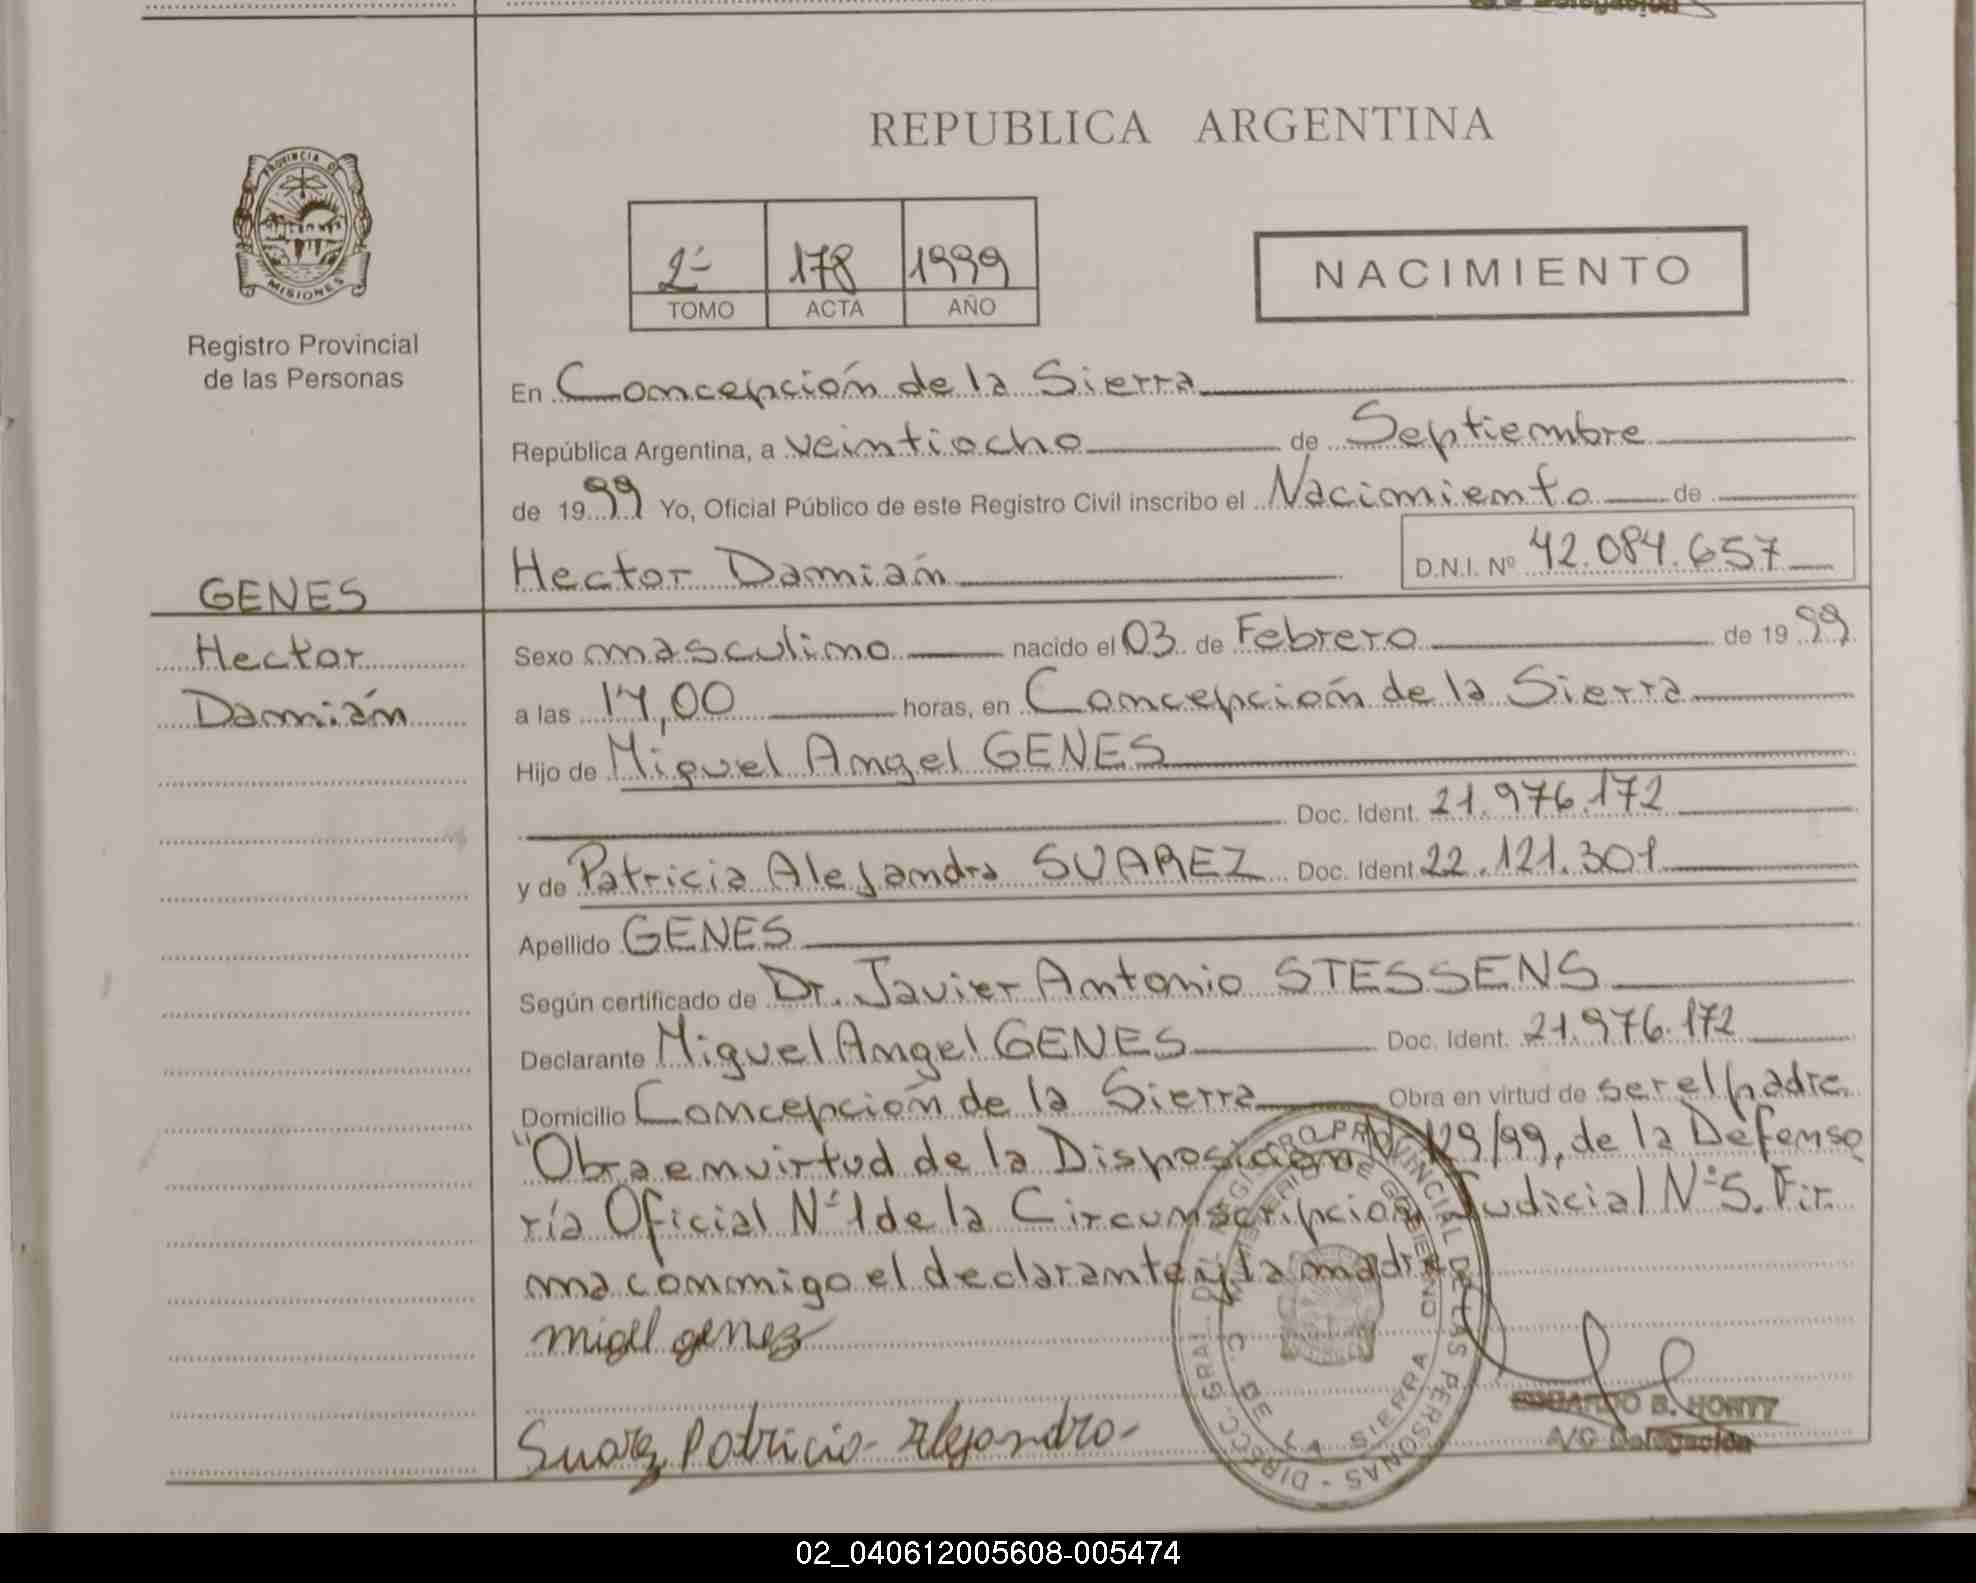 REPUBLICA ARGENTINA
PROVINCIA DE
MISIONES
Registro Provincial
de las Personas
2º 178 1999
TOMO ACTA AÑO
NACIMIENTO
En Concepción de la Sierra
República Argentina, a veintiocho de Septiembre
de 1999 Yo, Oficial Público de este Registro Civil inscribo el Nacimiento de
Hector Damián D.N.I. Nº 42.084.657
GENES
Hector
Damián
Sexo masculino nacido el 03 de Febrero de 1999
a las 14,00 horas, en Concepción de la Sierra
Hijo de Miguel Angel GENES
Doc. Ident. 21.976.172
y de Patricia Alejandra SUAREZ Doc. Ident 22.121.301
Apellido GENES
Según certificado de Dr. Javier Antonio STESSENS
Declarante Miguel Angel GENES Doc. Ident. 21.976.172
Domicilio Concepción de la Sierra Obra en virtud de ser el padre.
"Obra en virtud de la Disposición Nº 129/99, de la Defenso
ría Oficial Nº 1 de la Circunscripción Judicial Nº 5. Fir.
ma conmigo el declarante y la madre
migel genez
Suarez Patricia Alejandra
DIRECC. GRAL. DEL REGISTRO PROVINCIAL DE LAS PERSONAS
MINISTERIO DE GOBIERNO
C. DE LA SIERRA
EDUARDO B. HONTY
A/C Delegación
02_040612005608-005474